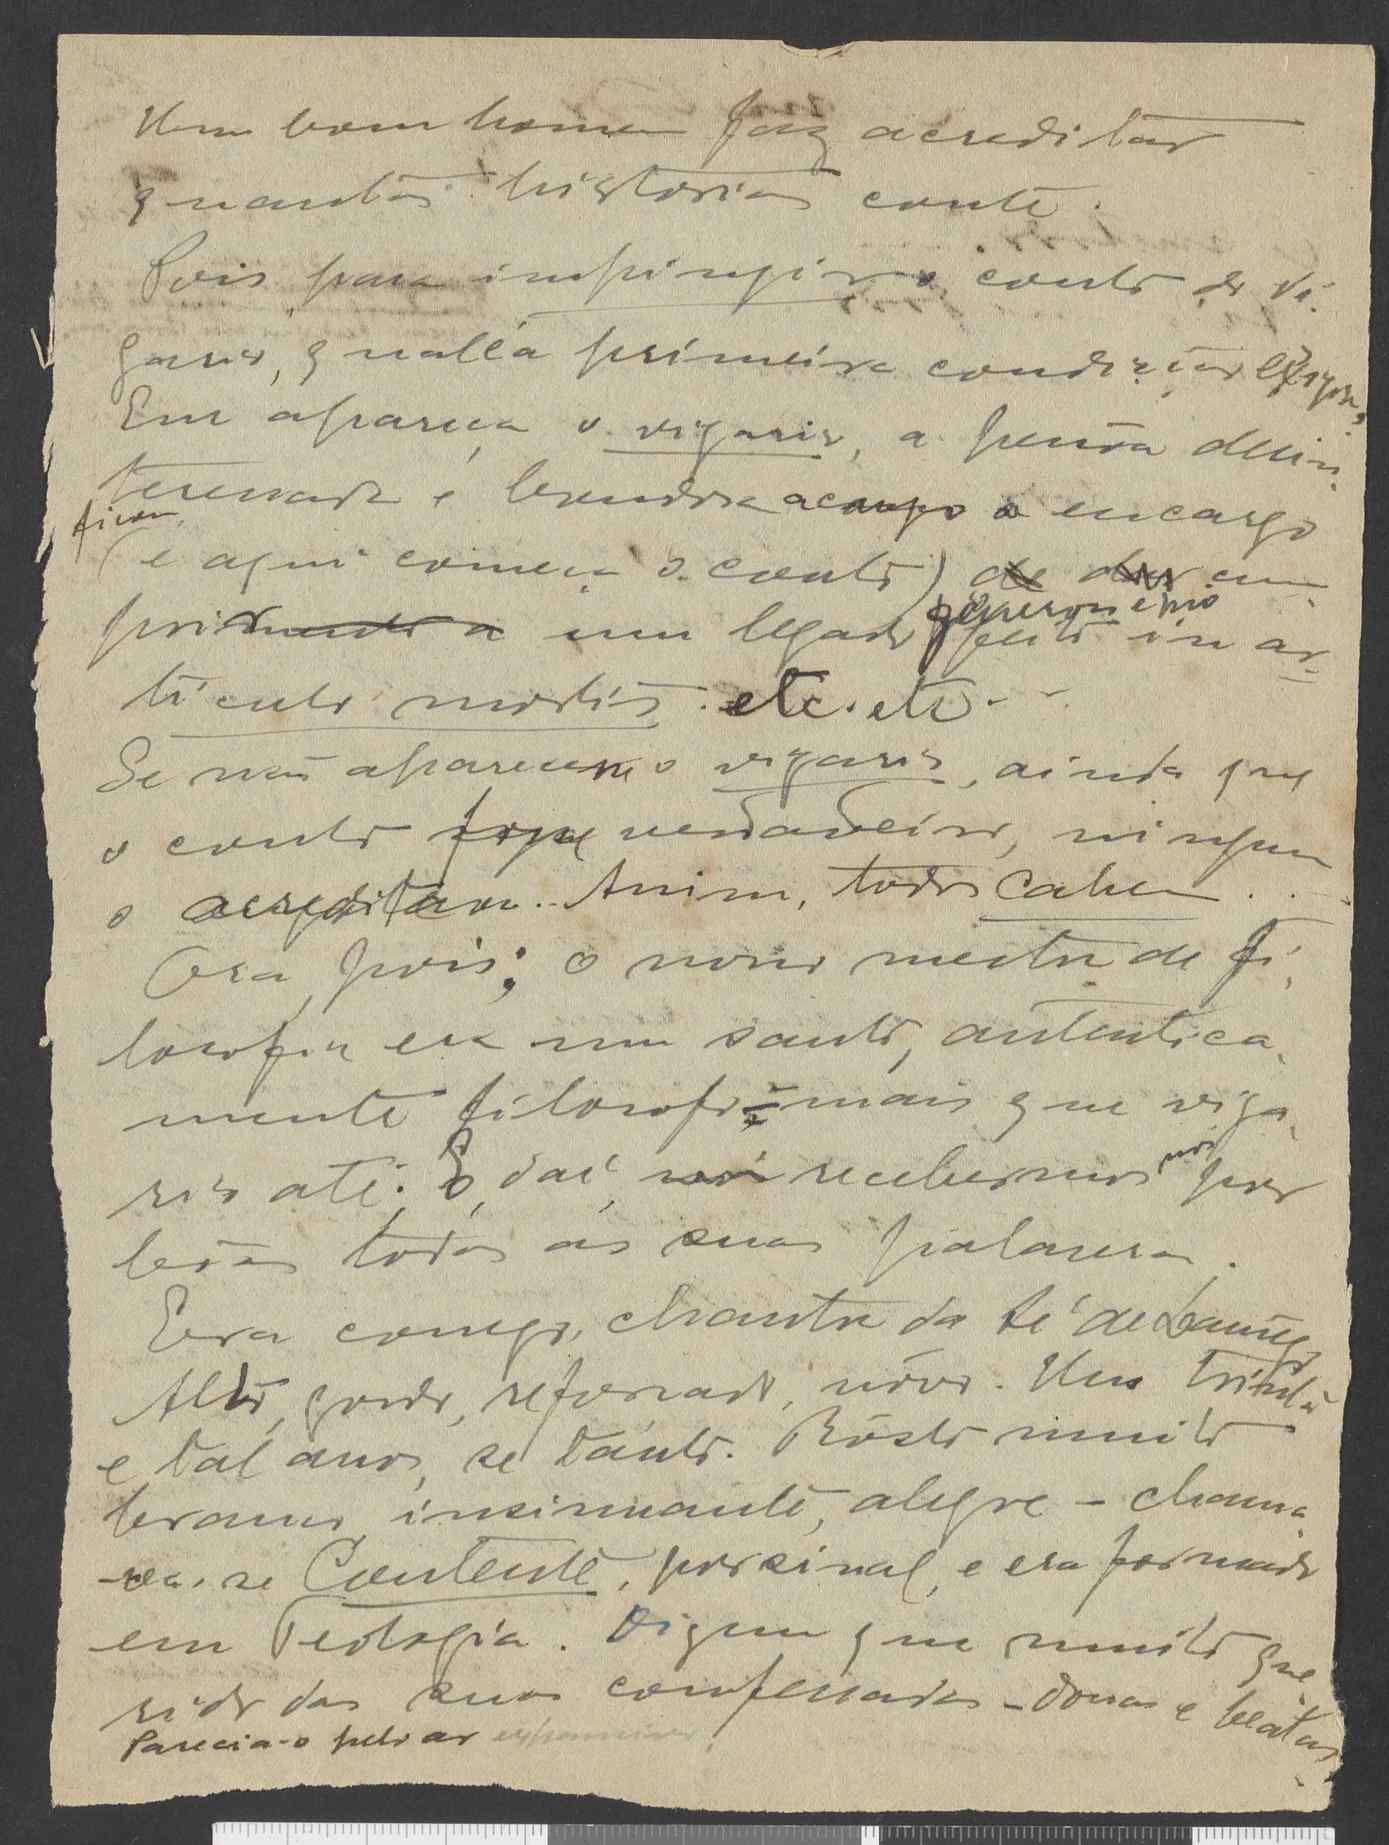 Um bom homem faz acreditar
quantas historias conte.
Pois para impingir o conto do vi-
gario, qual é a primeira condição exigida?
Em apareça o vigario, a pessôa desin-
teressada e bondosa a cargo o encargo
ficou
(e aqui começa o conto) de dar cum
prir um legado generosissimo feito in ar-
ticulo mortis. etc. etc...
Se não aparecesse o vigario, ainda que
o conto fosse verdadeiro, ninguem
o acreditava.. Assim, todos cahem...
Ora, pois; o nosso mestre de fi-
losofia era um santo, autentica-
mente filosofo - mais que viga-
rio até. E, daí, nós recebermos nós por
bôas todas as suas palavras.
Era conego, chantre da Sé de Lamego
Alto, gordo, reforçado, nôvo. Uns trinta
e tal anos, se tanto. Rôsto muito
branco, insinuante, alegre - chama-
va-se Contente, por sinal, e era formado
em Teologia. Dizem que muito que
rido das suas confessadas - donas e beatas.
Parecia-o pelo ar